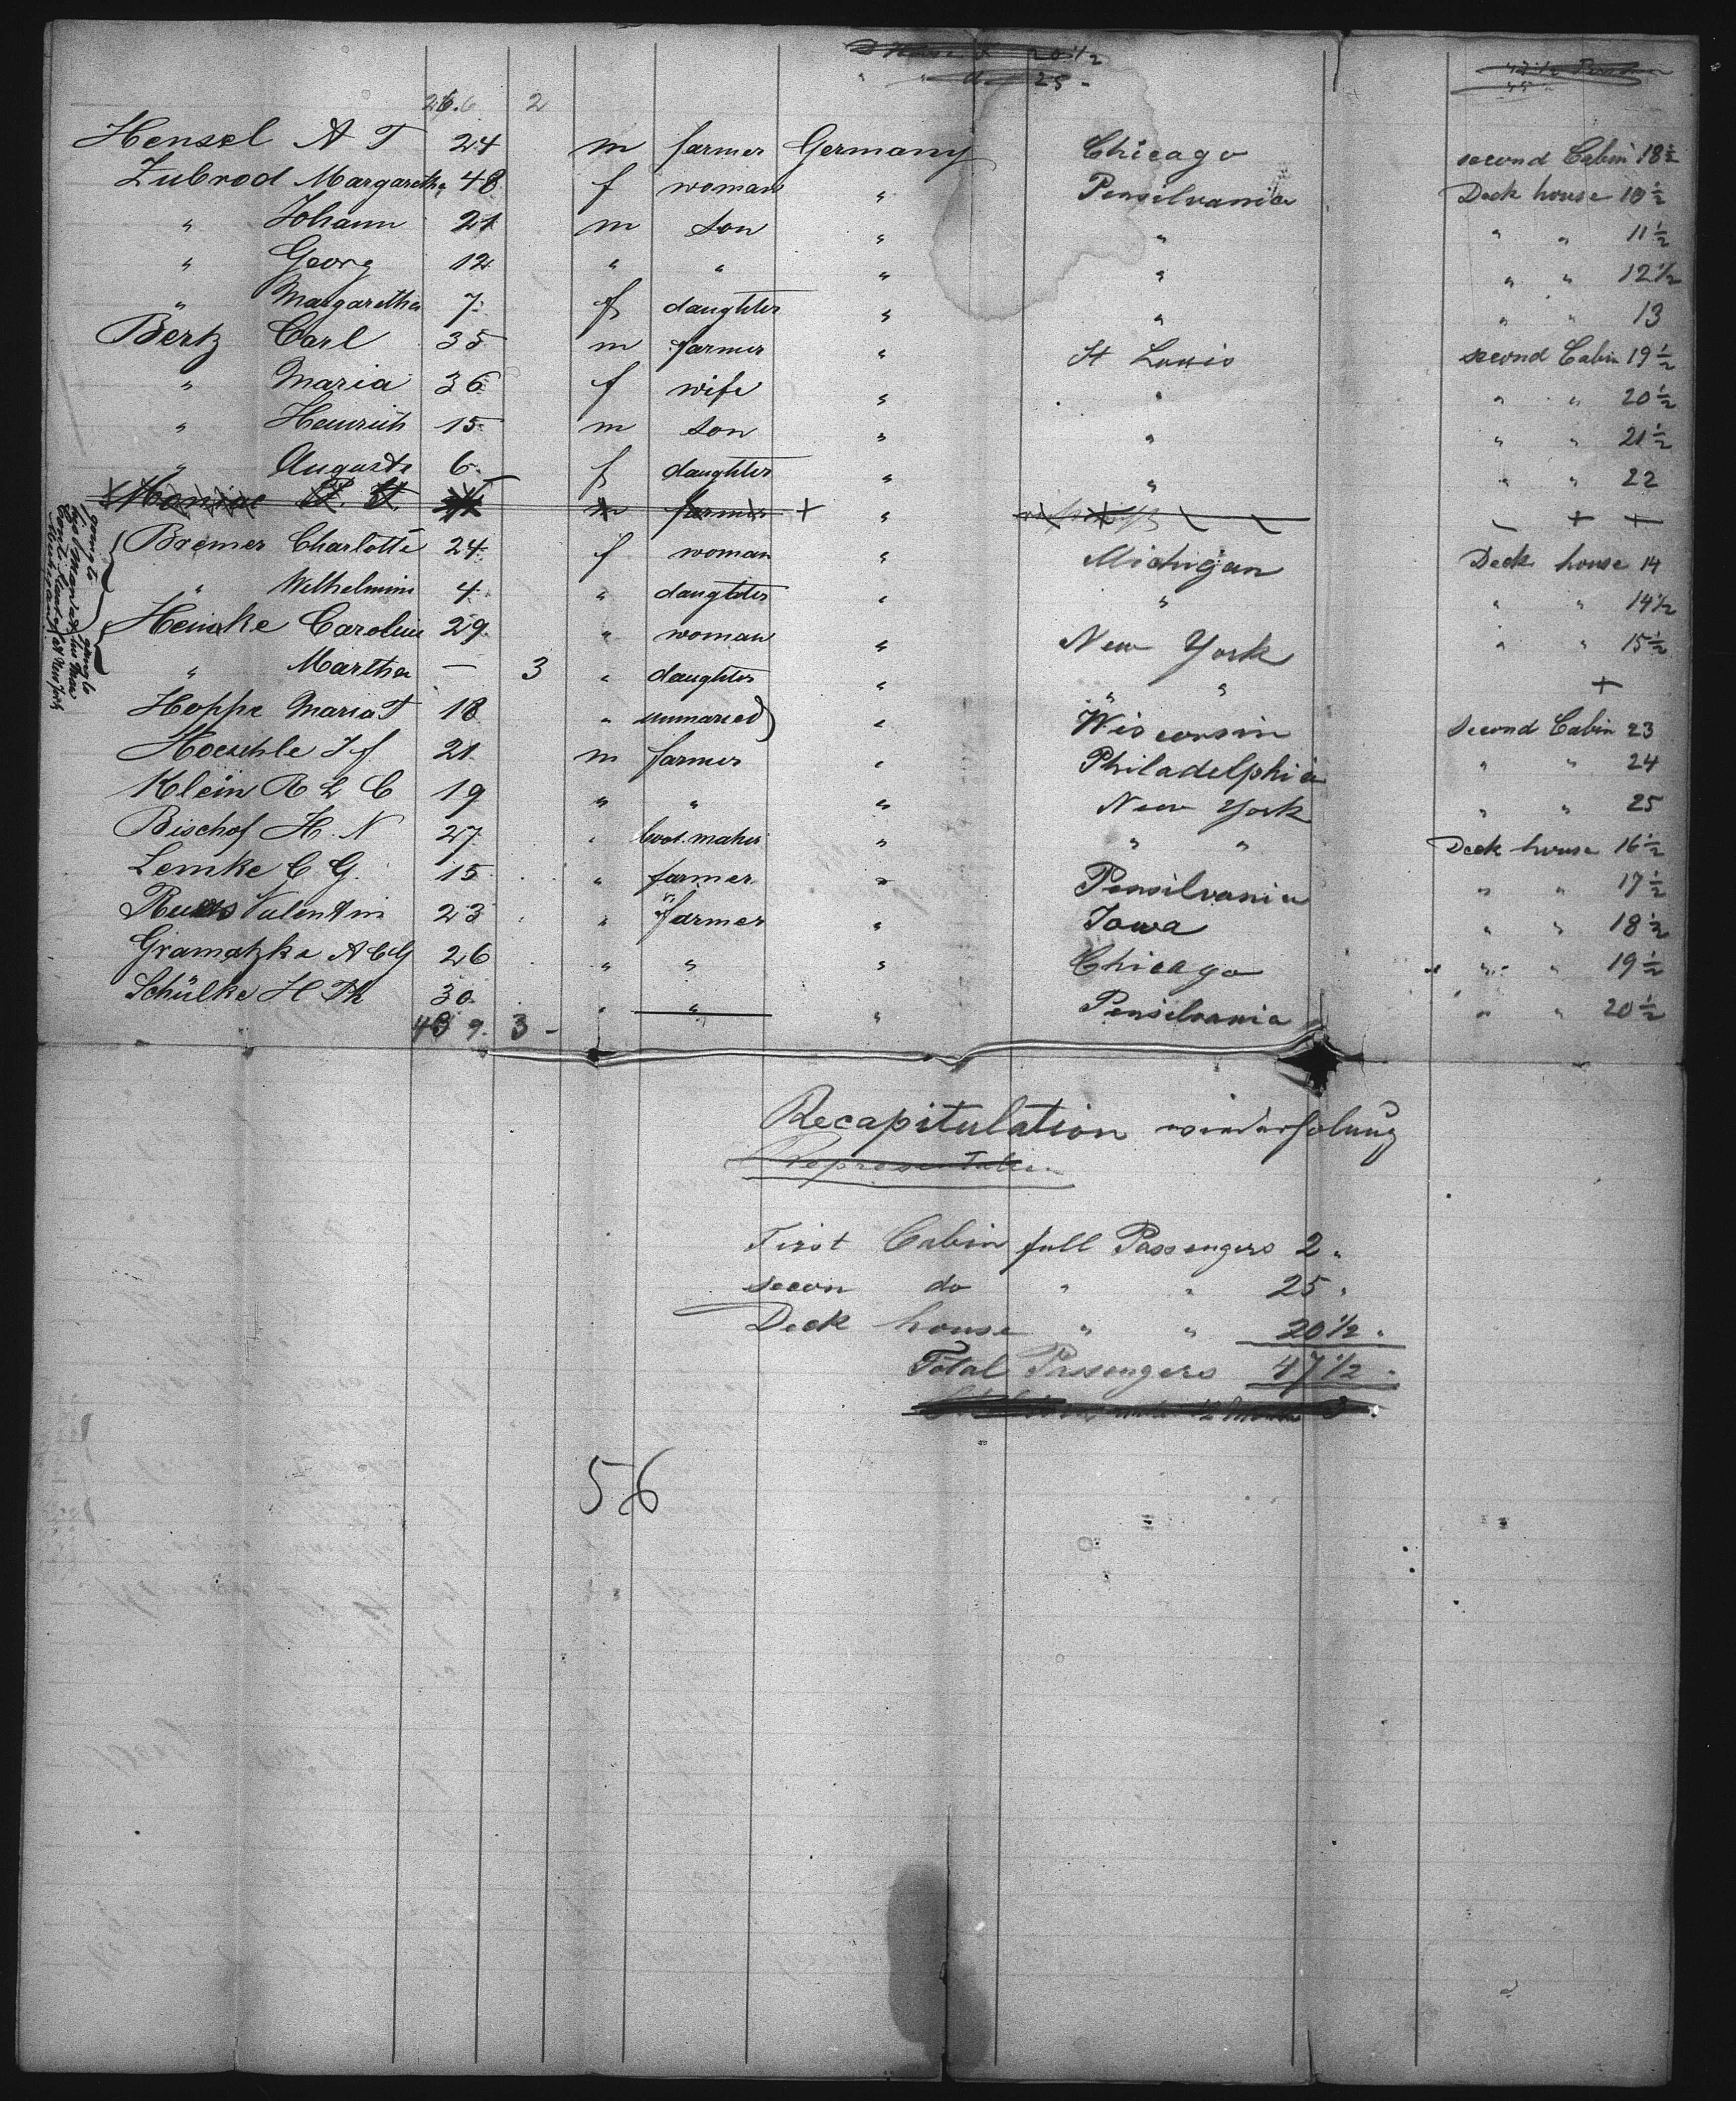 20 1/2
" " 25 -
26. 6 2
Hensel A T 24 m farmer Germany Chicago second Cabin 18 1/2
Zubrod Margaretha 48 f woman " Pensilvania Deck house 10 1/2
" Johann 21 m son " " " " 11 1/2
" Georg 12 " " " " " " 12 1/2
" Margaretha 7 f daughter " " " " 13
Bertz Carl 35 m farmer " St Louis second Cabin 19 1/2
" Maria 36 f wife " " " " 20 1/2
" Heinrich 15 m son " " " " 21 1/2
" Auguste 6 f daughter " " " " 22
m farmer + "
Bremer Charlotte 24 f woman " Michigan Deck house 14
" Wilhelmine 4 " daughter " " " " 14 1/2
Heincke Caroline 29 " woman " New York " " 15 1/2
" Martha — 3 " daughter " " " +
Hoppe Maria T 18 " unmaried " Wisconsin second Cabin 23
Hoeschle J f 21 m farmer " Philadelphia " " 24
Klein R L C 19 " " " New York " " 25
Bischof H. N 27 " boot maker " " " Deck house 16 1/2
Lemke C G. 15 " farmer " Pensilvania " " 17 1/2
Valentin 23 " farmer " Iowa " " 18 1/2
Gramatzke A C G 26 " " " Chicago " " 19 1/2
Schülke H Th 30 " " " Pensilvania " " 20 1/2
9. 3 -
going to
New York
Recapitulation wiederholung
Representation
First Cabin full Passengers 2 "
secon do " " 25 "
Deck house " " 20 1/2 "
Total Passengers 47 1/2 "
56